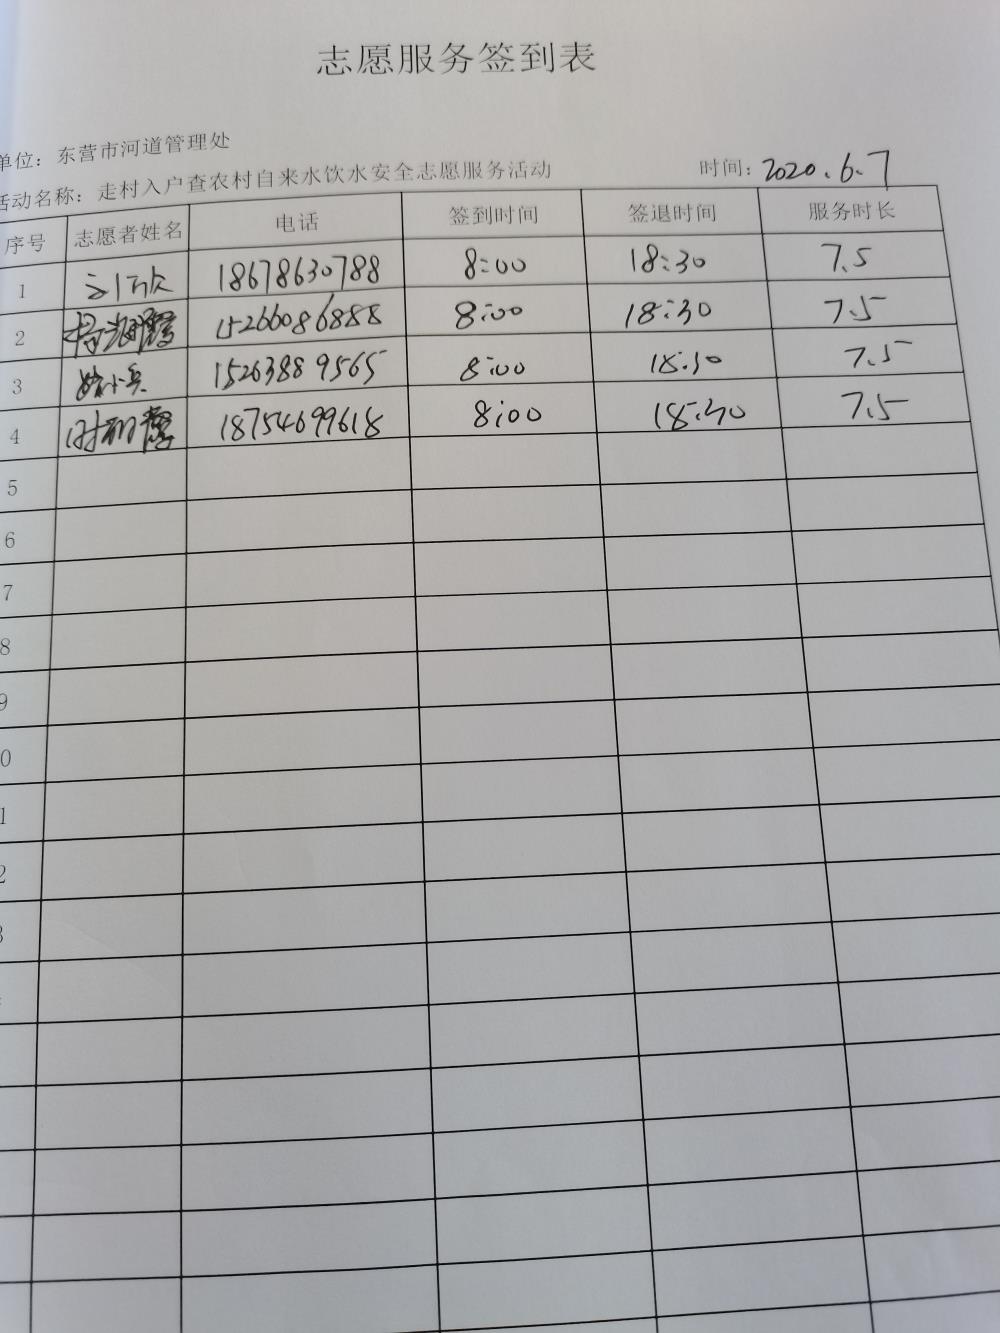 志愿服务签到表
单位：东营市河道管理处
活动名称：走村入户查农村自来水饮水安全志愿服务活动 时间：2020.6.7
序号 志愿者姓名 电话 签到时间 签退时间 服务时长
1 18678630788 8:00 18:30 7.5
2 15266086888 8:00 18:30 7.5
3 15263889565 8:00 18:30 7.5
4 18754699618 8:00 18:30 7.5
5
6
7
8
9
0
1
2
3